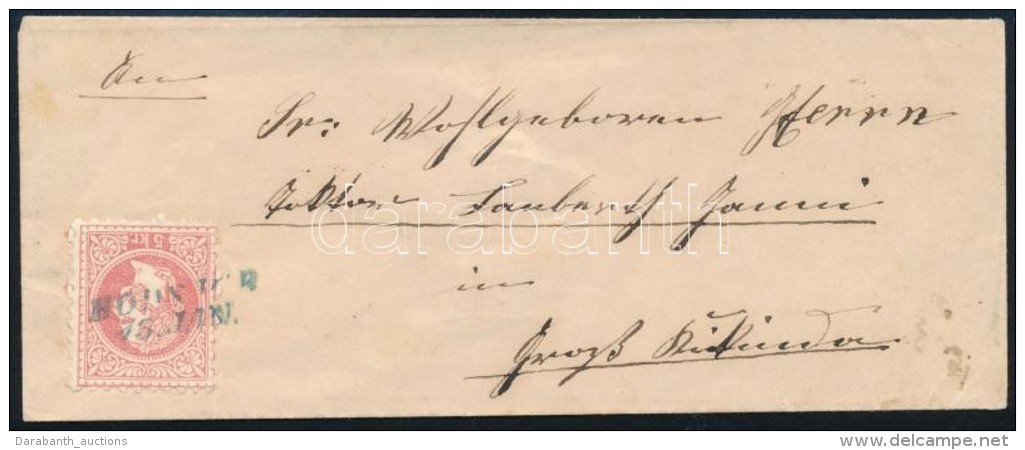 An
Sr: Wohlgeboren Herrn
Doktor Lauberth Janni
in
Groß Kikinda
5 kr
15. JAN.
darabanth
Darabanth_auctions
delcampe.net